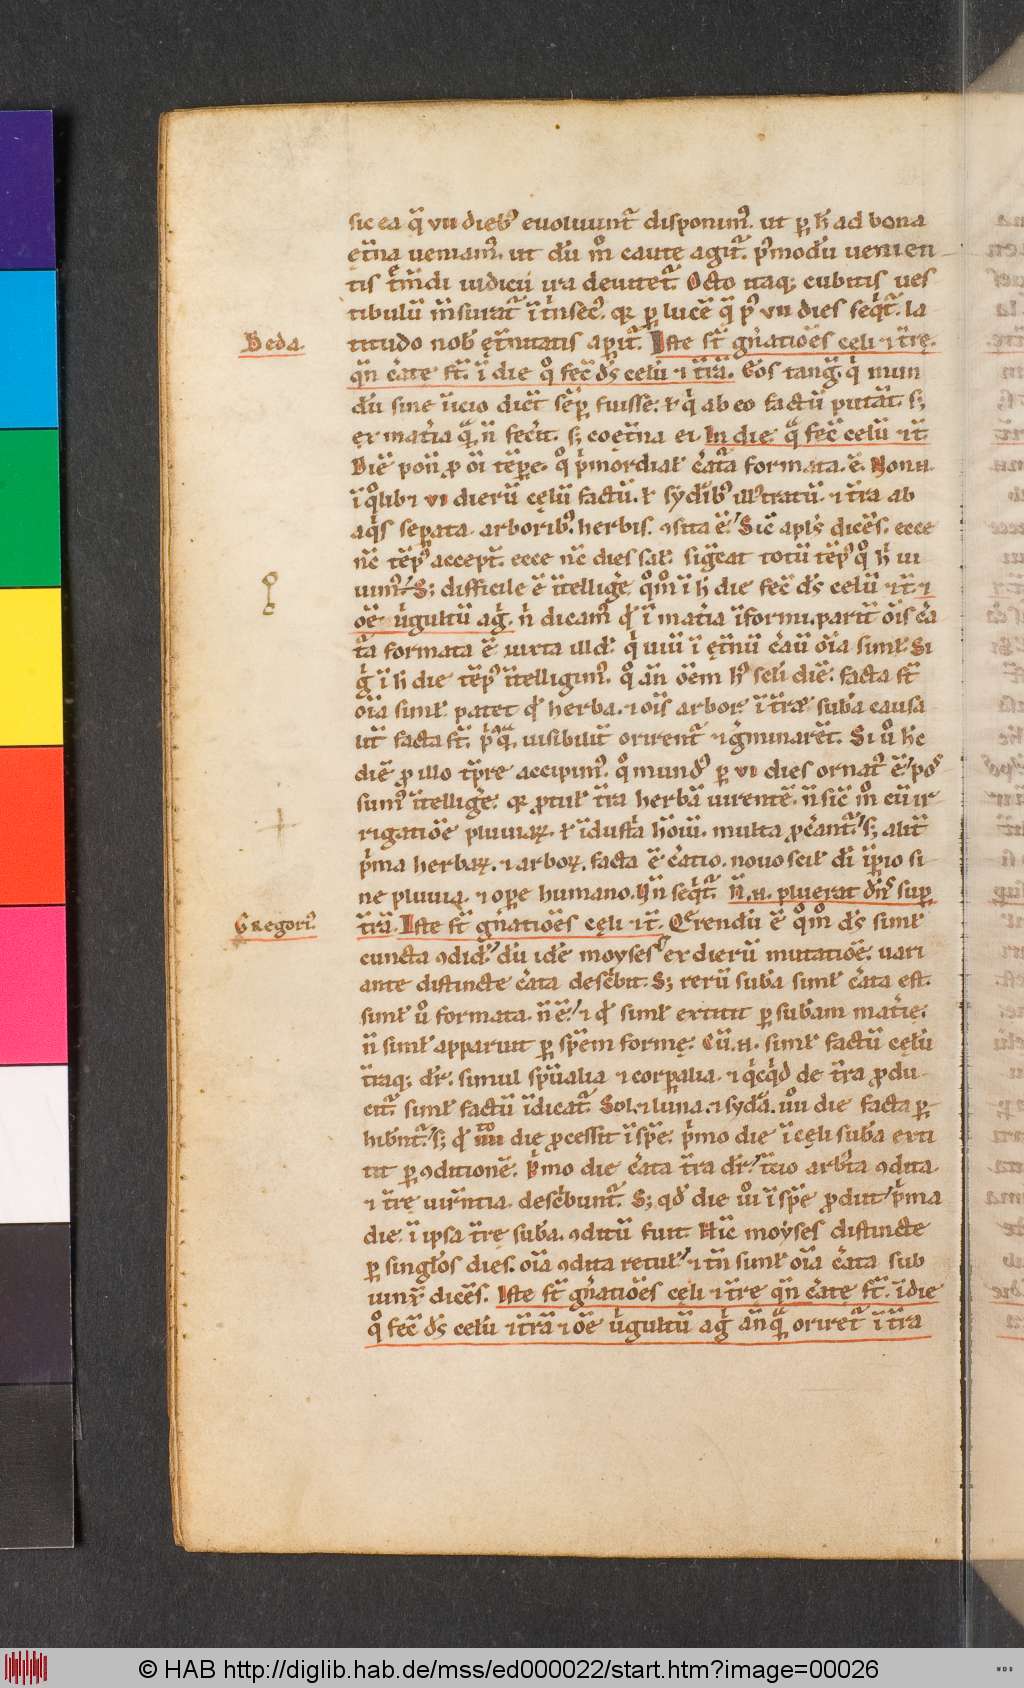 sic ea q̄ vii dieb᷒ euoluunt᷑ disponim᷒. ut ꝑ h̄ ad bona
et̄na ueniam᷒. ut dū m̊ caute agit᷑. p᷒modū uenien
tis t̄m̄di iudicii ira deuitet᷑. Octo itaq; cubitis ues
tibulū m̄surat᷑ īt̄nsec᷒. qr ꝑ lucē q̄ p᷒ vii dies seq̄t᷑. la
Beda.
titudo nob̄ ęt̄nitatis aꝑit᷑. Iste st̄ gn̄atiōes cęli ⁊ t̄rę.
qn̄ c̄ate st̄. ī die qͦ fec̄ ds̄ celū ⁊ t̄rā. Eos tanḡ. qͥ mun
dū sine īicio dic̄t sēꝑ fuisse. ł qͥ ab eo factū putāt. s;
ex mat̄ia q̄ n̄ fec̄it. s; coet̄na ei. In die. qͦ fec̄ celū ⁊ t̄.
Diē pon̄ ꝓ oī tēꝑe. qͦ p̄mordial᷒ c̄ata formata. ē. Non .n.
ī qͦlib⁊ vi dierū cęlū factū. ł syd̄ib᷒ ill᷒tratū. ⁊ t̄ra ab
aqͥs seꝑata. arborib᷒. herbis. ꝯsita ē. Sic̄ apl̄s dicēs. ecce
nc̄ tēp᷒ accept̄. ecce nc̄ dies sal᷒. siḡcat totū tēp᷒ qͦ h̄ ui
uim᷒. S; difficile ē ītelliḡe qͦm̊ ī h̄ die fec̄ ds̄ celū ⁊ t̄. ⁊
ōe ūgultū ag̓. n̄ dicam᷒ qd̓ ī mat̄ia īformi. parit̄ oīs c̄a
t̄a formata ē iuxta illd̓. qͥ uiū ī ęt̄nū c̄auī oīa simł. Si
g̊ ī h̄ die tēp᷒ ītelligim᷒. qͦ an̄ ōem h᷒ seli diē. facta st̄
oīa simł. patet qd̓ herba. ⁊ oīs arbor ī t̄rae sub̄a causa
lit̄ facta st̄. p̄q̄. uisibilit̄ orirent᷑ ⁊ g̓minarēt. Si ů h̄c
diē ꝓ illo tp̄re accipim᷒. qͦ mund᷒ ꝑ vi dies ornat᷒ ē. pos᷒
sum᷒ ītellig̓e. qr ꝓtul᷒ t̄ra herbā uirentē. n̄ sic̄ m̊ cū ir
rigatiōe pluuiaꝝ. ł īdust̄a hōiū. multa ꝓc̄ant᷑. s; alit̄
p̄ma herbaꝝ. ⁊ arboꝝ. facta ē c̄atio. nouo scil᷒ d̄i īꝑio si
ne pluuia. ⁊ oꝑe humano. Un̄ seq̄t᷑. N̄ .n. pluerat dn̄s suꝑ
Gregori᷒.
t̄rā. Iste st̄ gn̄atiōes cęli ⁊ t̄. Q̄rendū ē qͦm̊ ds̄ simł
cuncta ꝯdid᷒. dū idē moyses ex dierū mutatiōe. uari
ante distincte c̄ata desc̄bit. S; rerū sub̄a simł c̄ata est.
simł ů formata. n̄ ē. ⁊ qd̓ simł extitit ꝑ sub̄am mat̄ie.
n̄ simł apparuit ꝑ spēm formę. Cū .n. simł factū cęlū
t̄raq; dr̄. simul sp̄ualia ⁊ corꝑalia. ⁊ qͥcqͥd de t̄ra ꝓdu
cit᷑ simł factū īdicat᷑. Sol. ⁊ luna. ⁊ syd̄a. iiii̊ die facta ꝑ
hib̄nt᷑. s; qd̓ iiii̊ die ꝓcessit ī spē. p̄mo die ī cęli sub̄a exti
tit ꝑ ꝯditionē. P̄mo die c̄ata t̄ra dr̄. t̄cio arb̄ta ꝯdita.
⁊ t̄rę uir̄ntia. desc̄bunt᷑. S; qd̓ die iii̊ ī spē ꝓdiit p̄ma
die. ī ipsa t̄rę sub̄a. ꝯditū fuit. Hīc moyses distincte
ꝑ singlos dies. oīa ꝯdita retul᷒. ⁊ tn̄ simł oīa c̄ata sub
iunx̄ dicēs. Iste st̄ gn̄atiōes cęli ⁊ t̄re qn̄ c̄ate st̄. ī die
qͦ fec̄ ds̄ celū ⁊ t̄rā ⁊ ōe ūgultū ag̓ an̄q̄ oriret᷑ ī t̄ra
© HAB http://diglib.hab.de/mss/ed000022/start.htm?image=00026